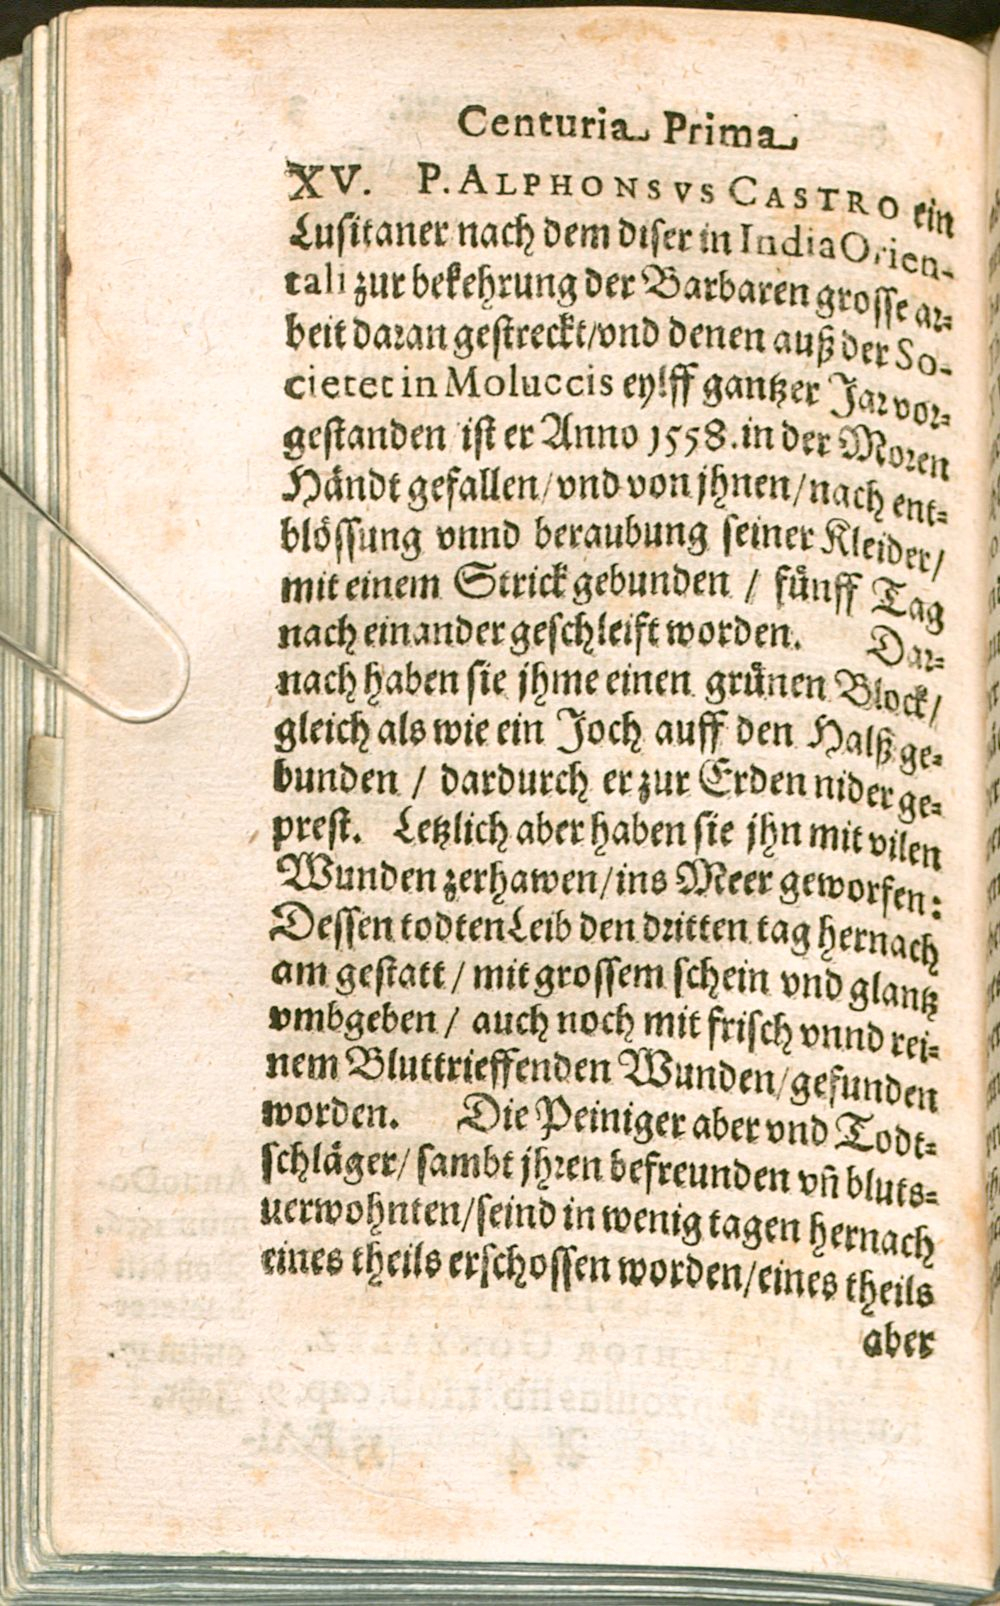 Centuria Prima
XV. P. ALPHONSVS CASTRO ein
Lusitaner nach dem diser in India Orien-
tali zur bekehrung der Barbaren grosse ar-
beit daran gestreckt/vnd denen auß der So-
cietet in Moluccis eylff gantzer Jar vor-
gestanden ist er Anno 1558. in der Moren
Händt gefallen/vnd von jhnen/nach ent-
blössung vnnd beraubung seiner Kleider/
mit einem Strick gebunden / fünff Tag
nach einander geschleift worden. Dar-
nach haben sie jhme einen grünen Block/
gleich als wie ein Joch auff den Halß ge-
bunden / dardurch er zur Erden nider ge-
prest. Letzlich aber haben sie jhn mit vilen
Wunden zerhawen/ins Meer geworfen:
Dessen todten Leib den dritten tag hernach
am gestatt / mit grossem schein vnd glantz
vmbgeben / auch noch mit frisch vnnd rei-
nem Bluttrieffenden Wunden/gefunden
worden. Die Peiniger aber vnd Todt-
schläger/ sambt jhren befreunden vñ bluts-
uerwohnten/seind in wenig tagen hernach
eines theils erschossen worden/eines theils
aber